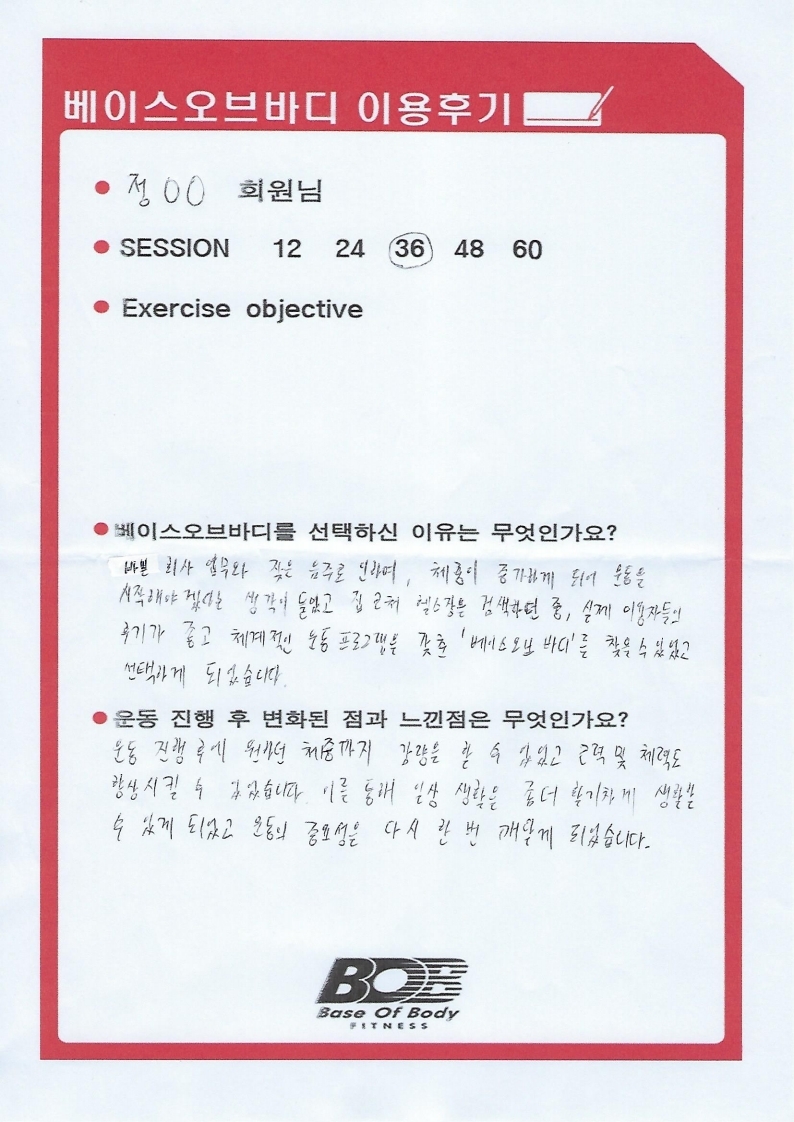 베이스오브바디 이용후기
정OO 회원님
SESSION 12 24 36 48 60
Exercise objective
베이스오브바디를 선택하신 이유는 무엇인가요?
바쁜 회사 업무와 잦은 음주로 인하여, 체중이 증가하게 되어 운동을
시작해야 겠다는 생각이 들었고 집 근처 헬스장을 검색하던 중, 실제 이용자들의
후기가 좋고 체계적인 운동 프로그램을 갖춘 '베이스오브 바디'를 찾을 수 있었고
선택하게 되었습니다.
운동 진행 후 변화된 점과 느낀점은 무엇인가요?
운동 진행 후에 원하던 체중까지 감량을 할 수 있었고 근력 및 체력도
향상시킬 수 있었습니다. 이를 통해 일상 생활을 좀더 활기차게 생활할
수 있게 되었고 운동의 중요성을 다시 한 번 깨닫게 되었습니다.
BOB
Base Of Body
FITNESS